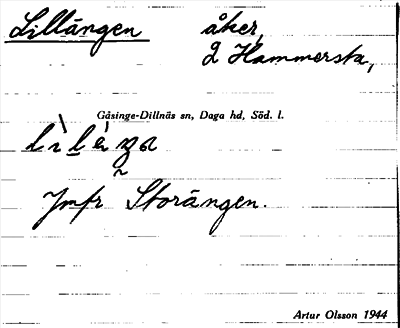 Lillängen åker,
2 Hammersta,
Gåsinge-Dillnäs sn, Daga hd, Söd. l.
Jmfr Storängen.
Artur Olsson 1944